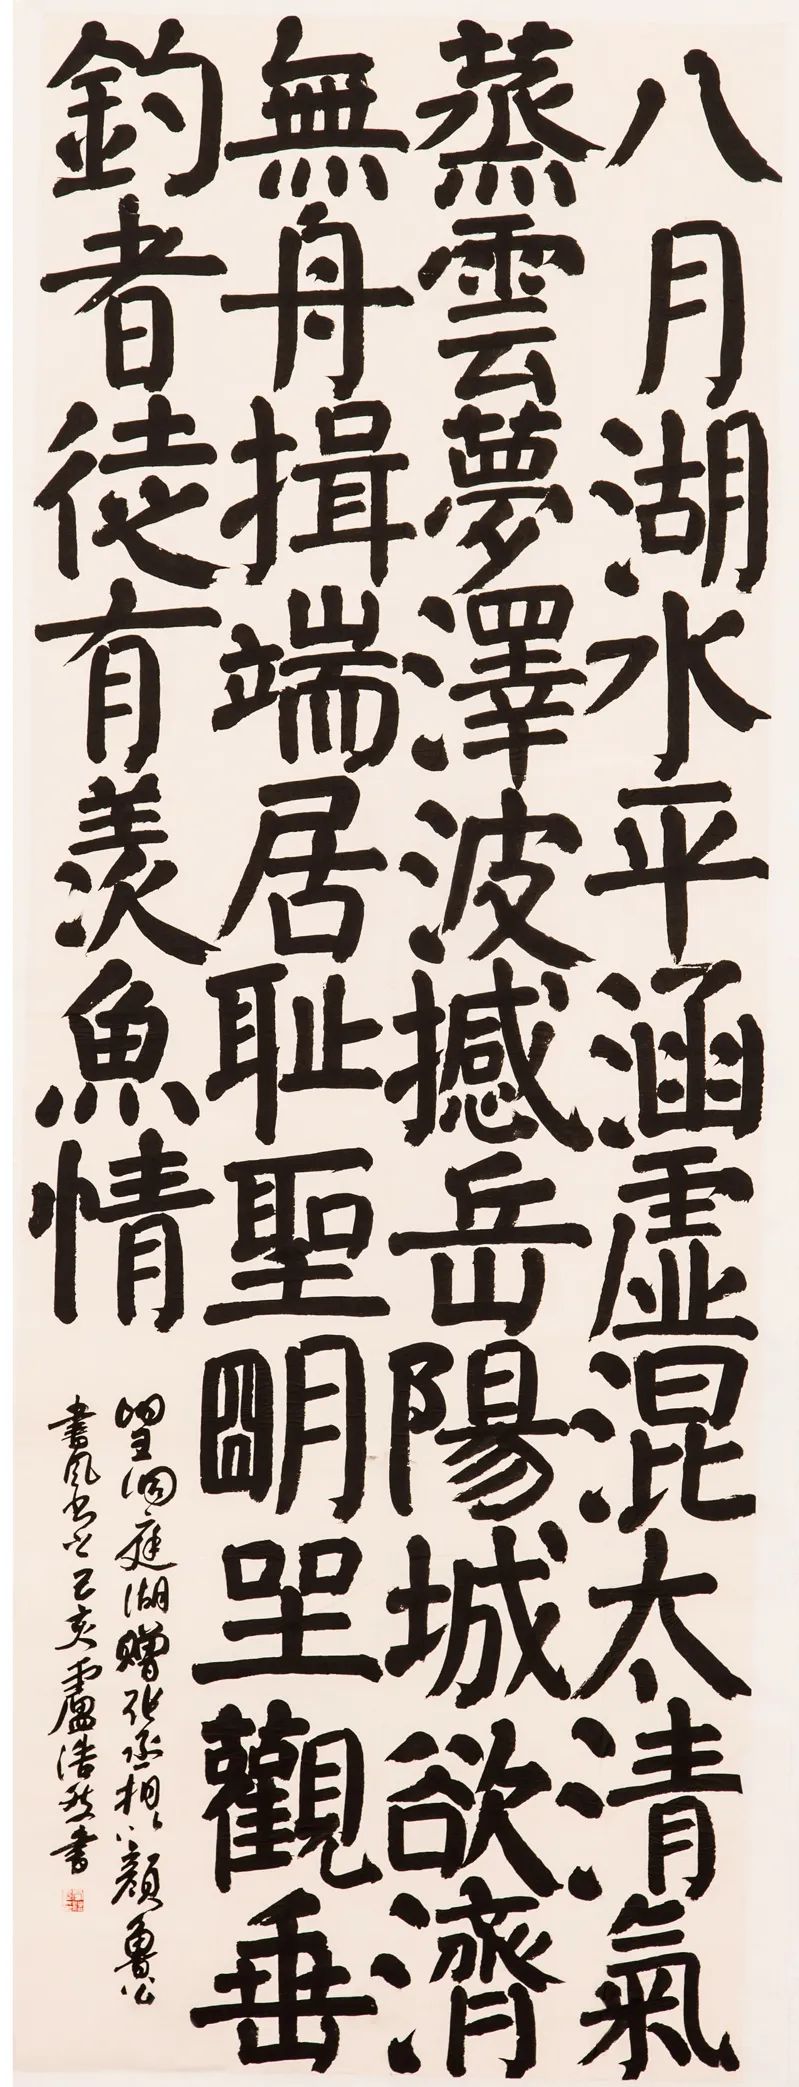 八月湖水平涵虚混太清氣
蒸雲夢澤波撼岳陽城欲濟
無舟揖端居耻聖朙坐觀垂
釣者徒有羡魚情
望洞庭湖贈张丞相以顔魯公
書風书之己亥盧浩然書